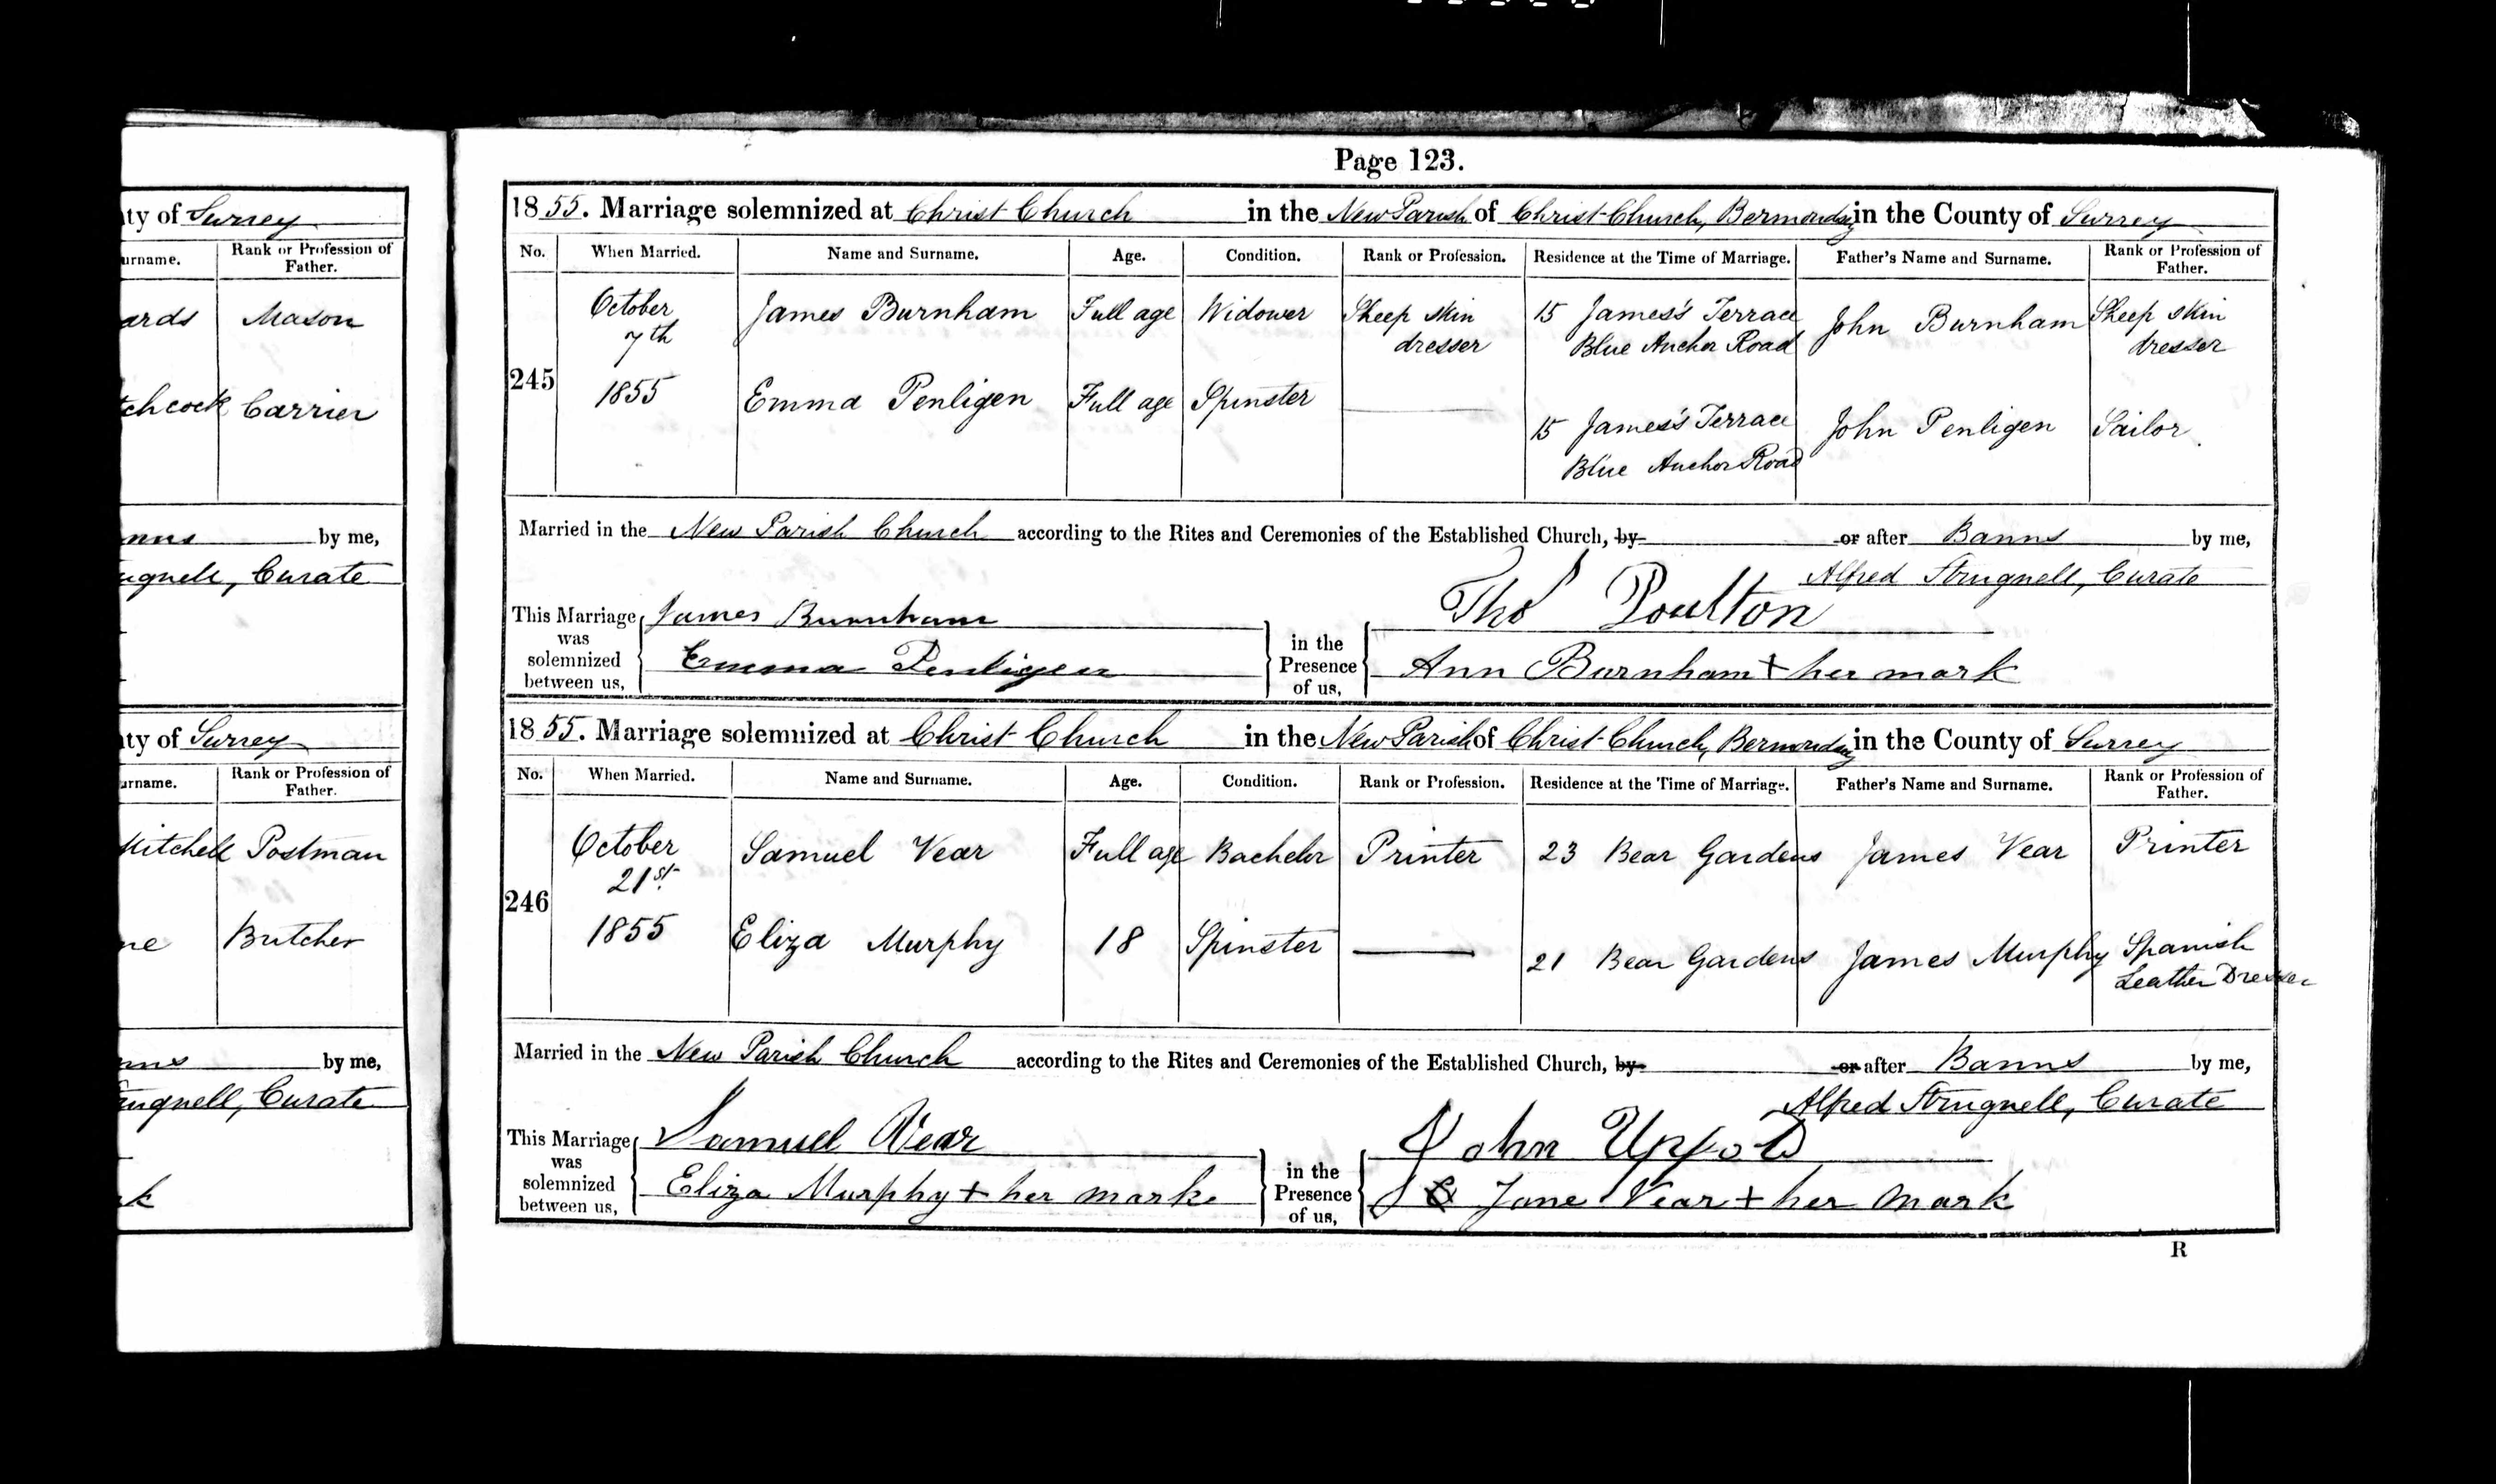 Page 123.
nty of Surrey
urname. Rank or Profession of Father.
ards Mason
tchcock Carrier
nns by me,
ugnell, Curate
nty of Surrey
urname. Rank or Profession of Father.
Mitchell Postman
ne Butcher
nns by me,
rugnell, Curate
rk
1855. Marriage solemnized at Christ Church in the New Parish of Christ-Church, Bermondsey in the County of Surrey
No. When Married. Name and Surname. Age. Condition. Rank or Profession. Residence at the Time of Marriage. Father's Name and Surname. Rank or Profession of Father.
245 October 7th 1855
James Burnham Full age Widower Sheep skin dresser 15 James's Terrace Blue Anchor Road John Burnham Sheep skin dresser
Emma Penligen Full age Spinster 15 James's Terrace Blue Anchor Road John Penligen Sailor
Married in the New Parish Church according to the Rites and Ceremonies of the Established Church, by or after Banns by me,
Alfred Strugnell, Curate
This Marriage was solemnized between us, James Burnham Emma Penligen in the Presence of us, Thos Poulton Ann Burnham + her mark
1855. Marriage solemnized at Christ Church in the New Parish of Christ-Church, Bermondsey in the County of Surrey
No. When Married. Name and Surname. Age. Condition. Rank or Profession. Residence at the Time of Marriage. Father's Name and Surname. Rank or Profession of Father.
246 October 21st 1855
Samuel Vear Full age Bachelor Printer 23 Bear Gardens James Vear Printer
Eliza Murphy 18 Spinster 21 Bear Gardens James Murphy Spanish Leather Dresser
Married in the New Parish Church according to the Rites and Ceremonies of the Established Church, by or after Banns by me,
Alfred Strugnell, Curate
This Marriage was solemnized between us, Samuel Vear Eliza Murphy + her mark in the Presence of us, John Upfold Jane Vear + her mark
R